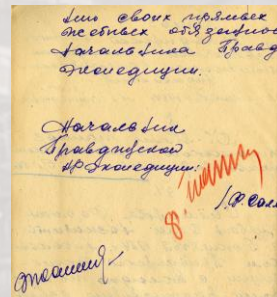 нию своих прямых
жебных обязанност
Начальника Правд
экспедиции.
Начальник
Правдинской
НР экспедиции: